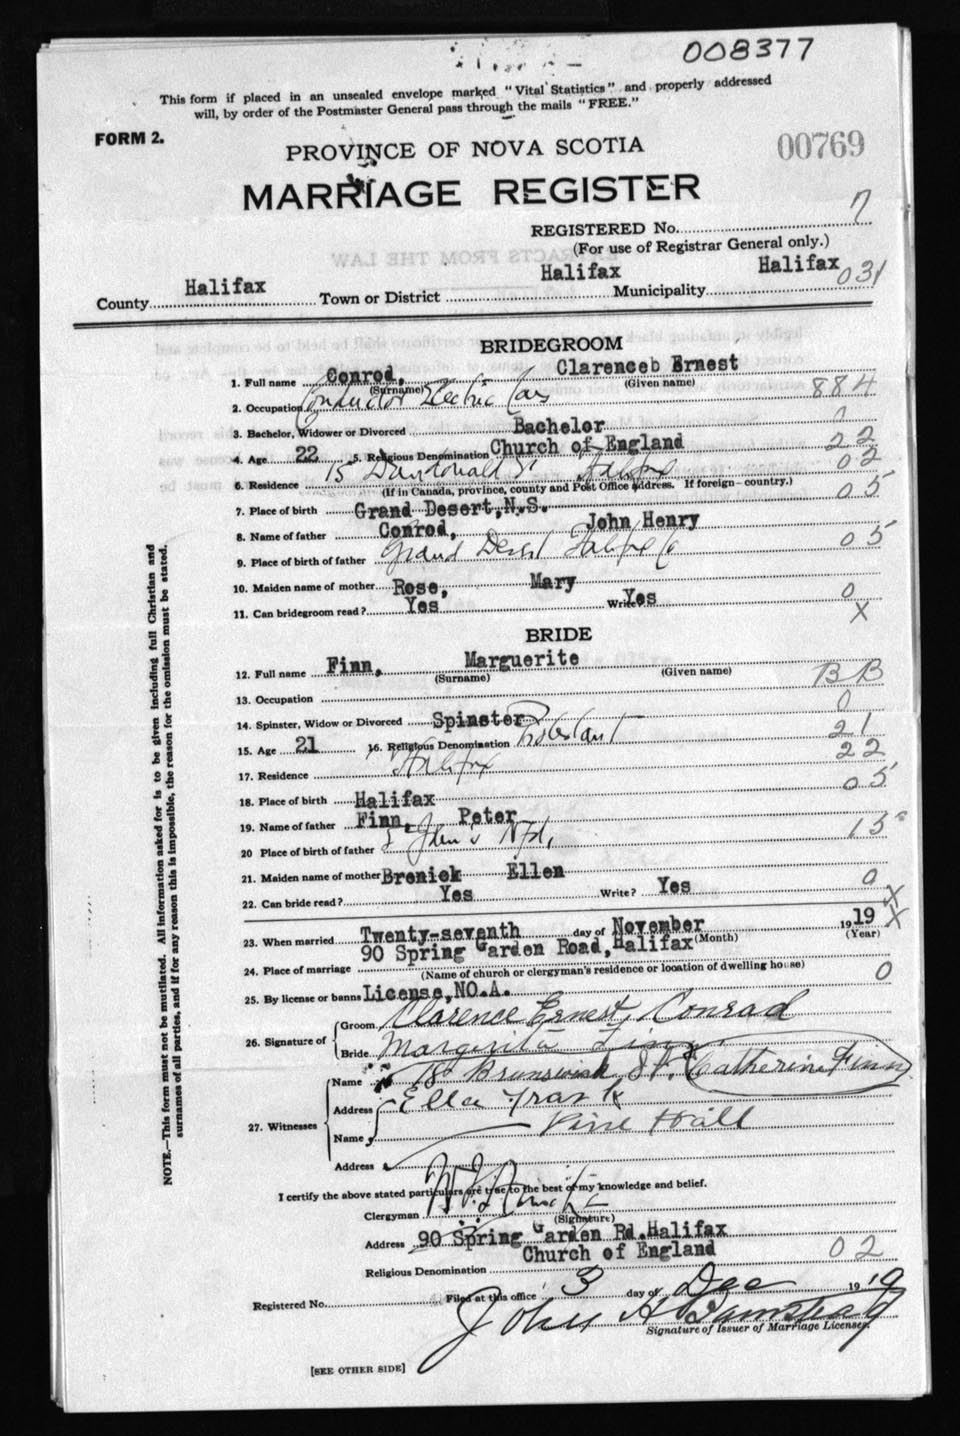 008377
This form if placed in an unsealed envelope marked "Vital Statistics" and properly addressed
will, by order of the Postmaster General pass through the mails "FREE."
FORM 2.
PROVINCE OF NOVA SCOTIA
00769
MARRIAGE REGISTER
REGISTERED No. 7
(For use of Registrar General only.)
County Halifax Town or District Halifax Municipality Halifax 031
BRIDEGROOM
1. Full name Conrod, Clarenceb Ernest
(Surname) (Given name)
2. Occupation Conductor Electric Cars 884
3. Bachelor, Widower or Divorced Bachelor 0
4. Age 22 5. Religious Denomination Church of England 22
6. Residence 15 Dundonald St Halifax 02
(If in Canada, province, county and Post Office address. If foreign - country.)
7. Place of birth Grand Desert, N.S. 05
8. Name of father Conrod, John Henry
9. Place of birth of father Grand Desert Halifax Co 05
10. Maiden name of mother Rose, Mary
11. Can bridegroom read? Yes Write Yes 0
X
BRIDE
12. Full name Finn, Marguerite
(Surname) (Given name)
13. Occupation BB
14. Spinster, Widow or Divorced Spinster 0
15. Age 21 16. Religious Denomination Protestant 21
17. Residence Halifax 22
18. Place of birth Halifax 05
19. Name of father Finn, Peter
20 Place of birth of father St John's Nfd. 13
21. Maiden name of mother Brenick Ellen
22. Can bride read? Yes Write? Yes 0
X
23. When married Twenty-seventh day of November 1919 X
(Month) (Year)
24. Place of marriage 90 Spring Garden Road, Halifax
(Name of church or clergyman's residence or location of dwelling house)
25. By license or banns License, NO.A. 0
26. Signature of
Groom Clarence Ernest Conrad
Bride Margerita Finn
27. Witnesses
Name Brunswick St. Catherine Finn
Address Ella
Name Pine Hill
Address
I certify the above stated particulars are true to the best of my knowledge and belief.
Clergyman
(Signature)
Address 90 Spring Garden Rd. Halifax
Religious Denomination Church of England 02
Registered No. Filed at this office 3 day of Dec 1919
John A
Signature of Issuer of Marriage Licenses.
[SEE OTHER SIDE]
NOTE.—This form must not be mutilated. All information asked for is to be given including full Christian and
surnames of all parties, and if for any reason this is impossible, the reason for the omission must be stated.